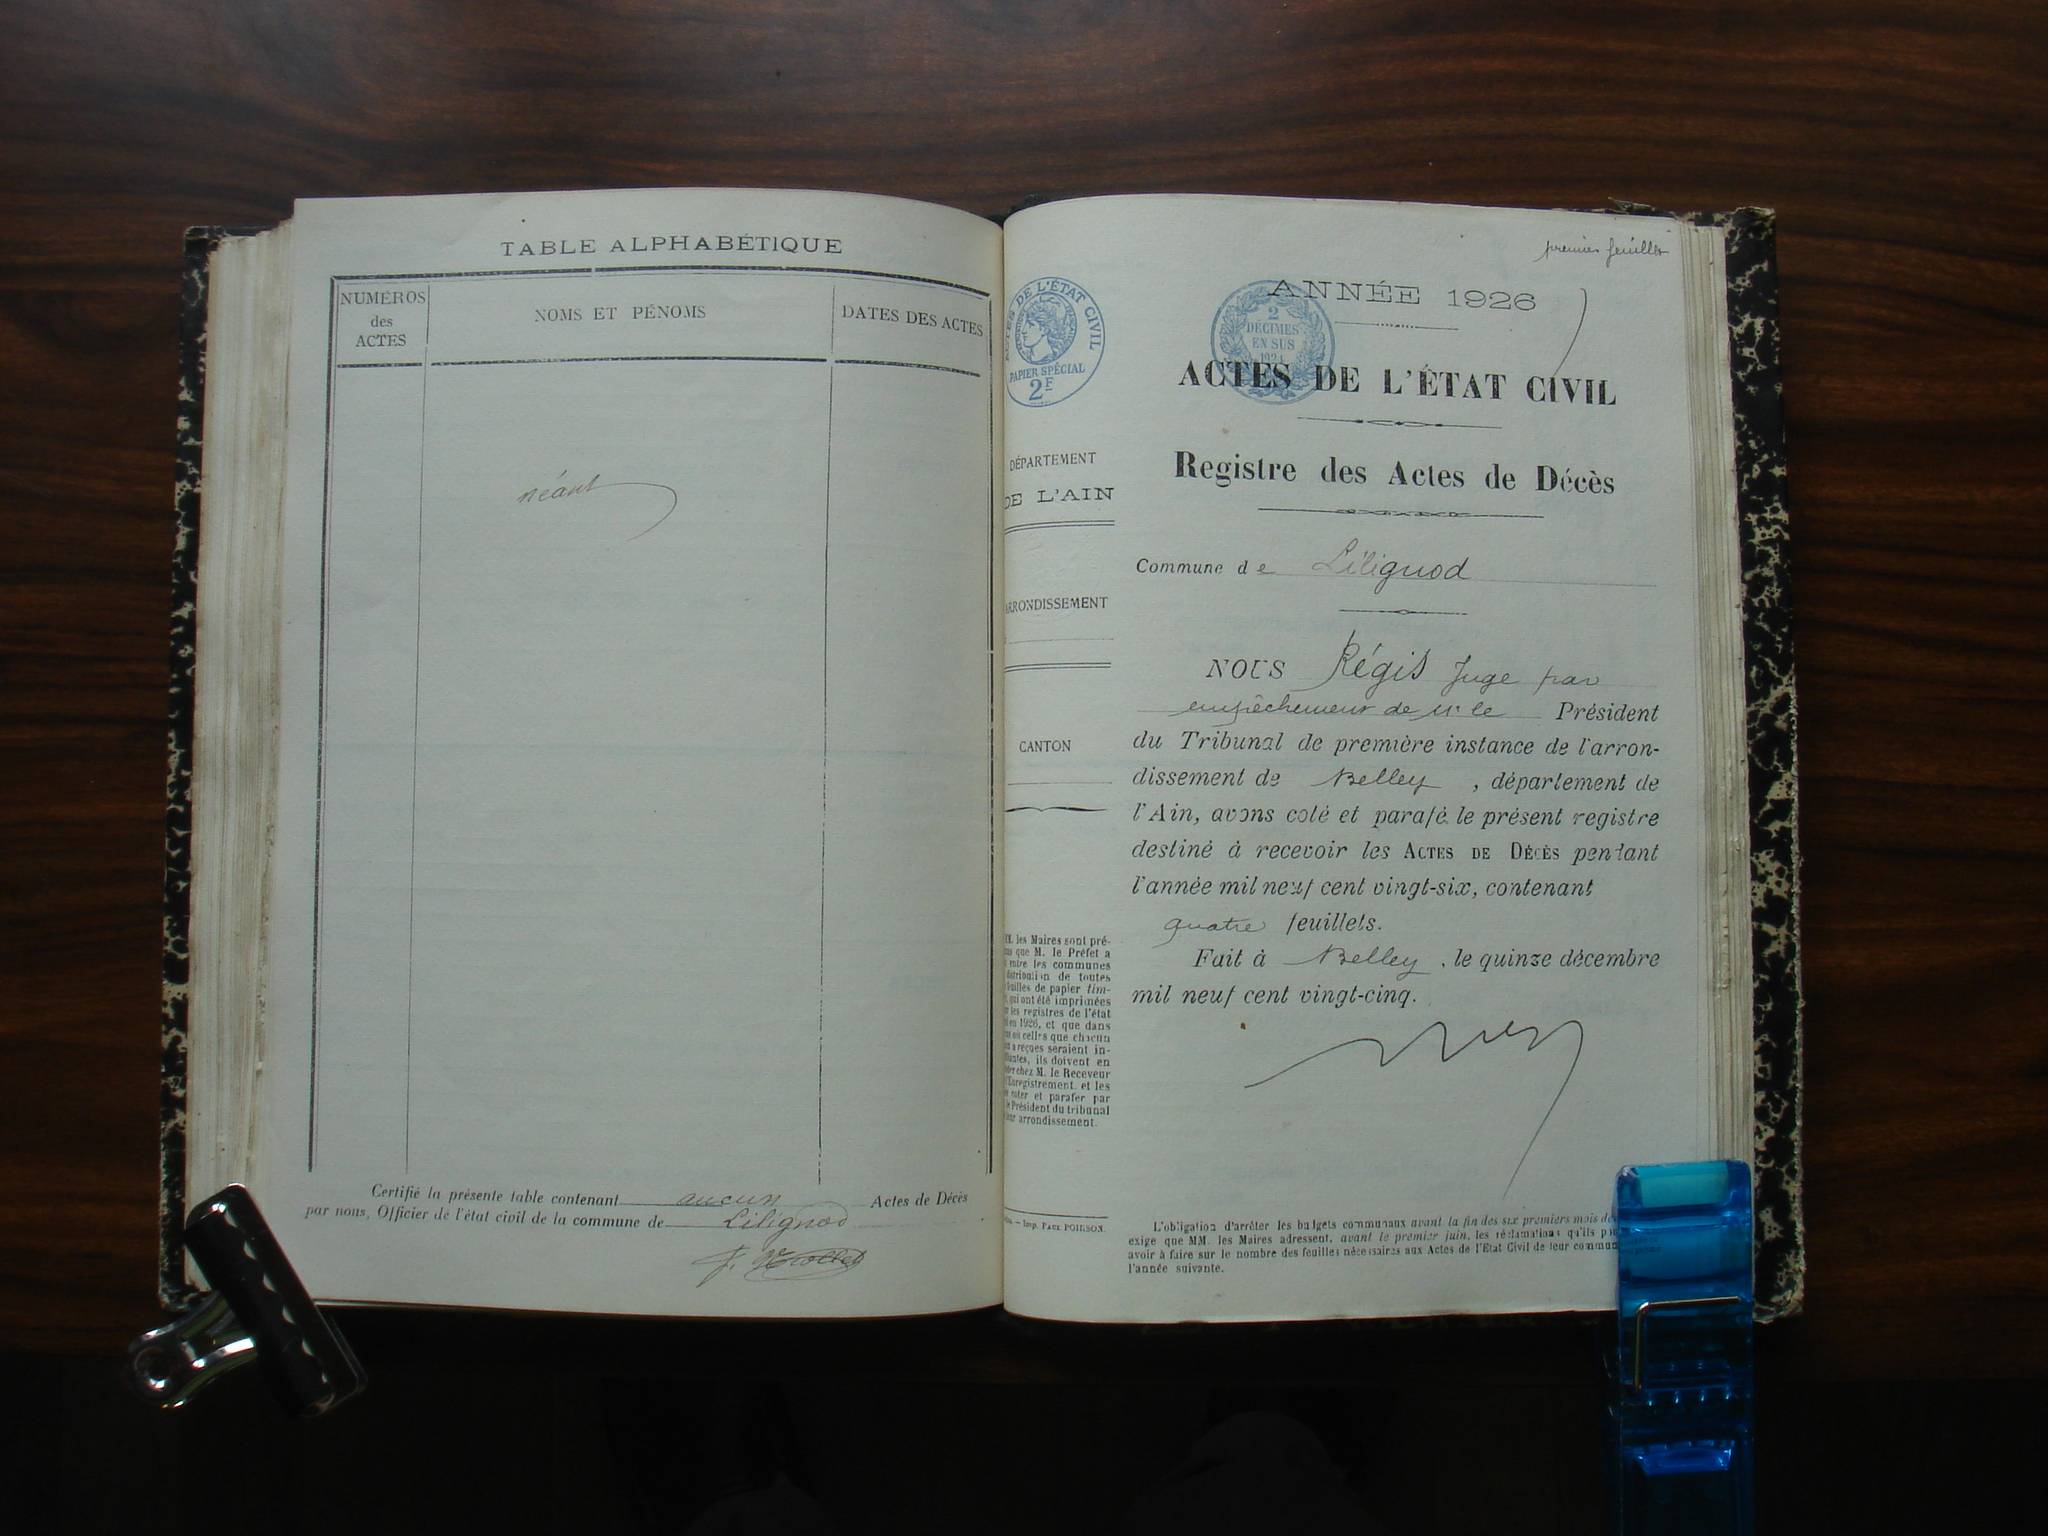 TABLE ALPHABÉTIQUE
NUMÉROS
des
ACTES
NOMS ET PÉNOMS
DATES DES ACTES
néant
Certifié la présente table contenant aucun Actes de Décès
par nous, Officier de l'état civil de la commune de Lilignod
premier feuillet
ANNÉE 1926
DE L'ÉTAT CIVIL
PAPIER SPÉCIAL
2F
2
DÉCIMES
EN SUS
ACTES DE L'ÉTAT CIVIL
Registre des Actes de Décès
DÉPARTEMENT
DE L'AIN
ARRONDISSEMENT
CANTON
Commune de Lilignod
NOUS Régis Juge par
empêchement de Mr le Président
du Tribunal de première instance de l'arron-
dissement de Belley, département de
l'Ain, avons coté et parafé le présent registre
destiné à recevoir les ACTES DE DÉCÈS pendant
l'année mil neuf cent vingt-six, contenant
quatre feuillets.
Fait à Belley, le quinze décembre
mil neuf cent vingt-cinq.
MM. les Maires sont pré-
que M. le Préfet a
entre les communes
distribution de toutes
feuilles de papier tim-
qui ont été imprimées
les registres de l'état
en 1926, et que dans
où celles que chacun
reçues seraient in-
ils doivent en
chez M. le Receveur
l'Enregistrement, et les
coter et parafer par
le Président du tribunal
arrondissement.
— Imp. PAUL POIRSON.
L'obligation d'arrêter les budgets communaux avant la fin des six premiers mois
exige que MM. les Maires adressent, avant le premier juin, les réclamations qu'ils
avoir à faire sur le nombre des feuilles nécessaires aux Actes de l'Etat Civil de leur
l'année suivante.